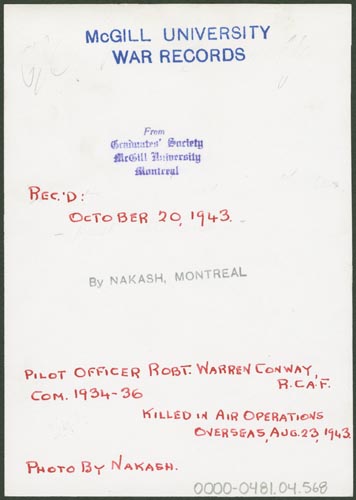 McGILL UNIVERSITY
WAR RECORDS
From
Graduates' Society
McGill University
Montreal
REC.'D:
OCTOBER 20, 1943.
By NAKASH, MONTREAL
PILOT OFFICER ROBT. WARREN CONWAY,
R.C.A.F.
COM. 1934-36
KILLED IN AIR OPERATIONS
OVERSEAS, AUG. 23, 1943.
PHOTO BY NAKASH.
0000-0481.04.568